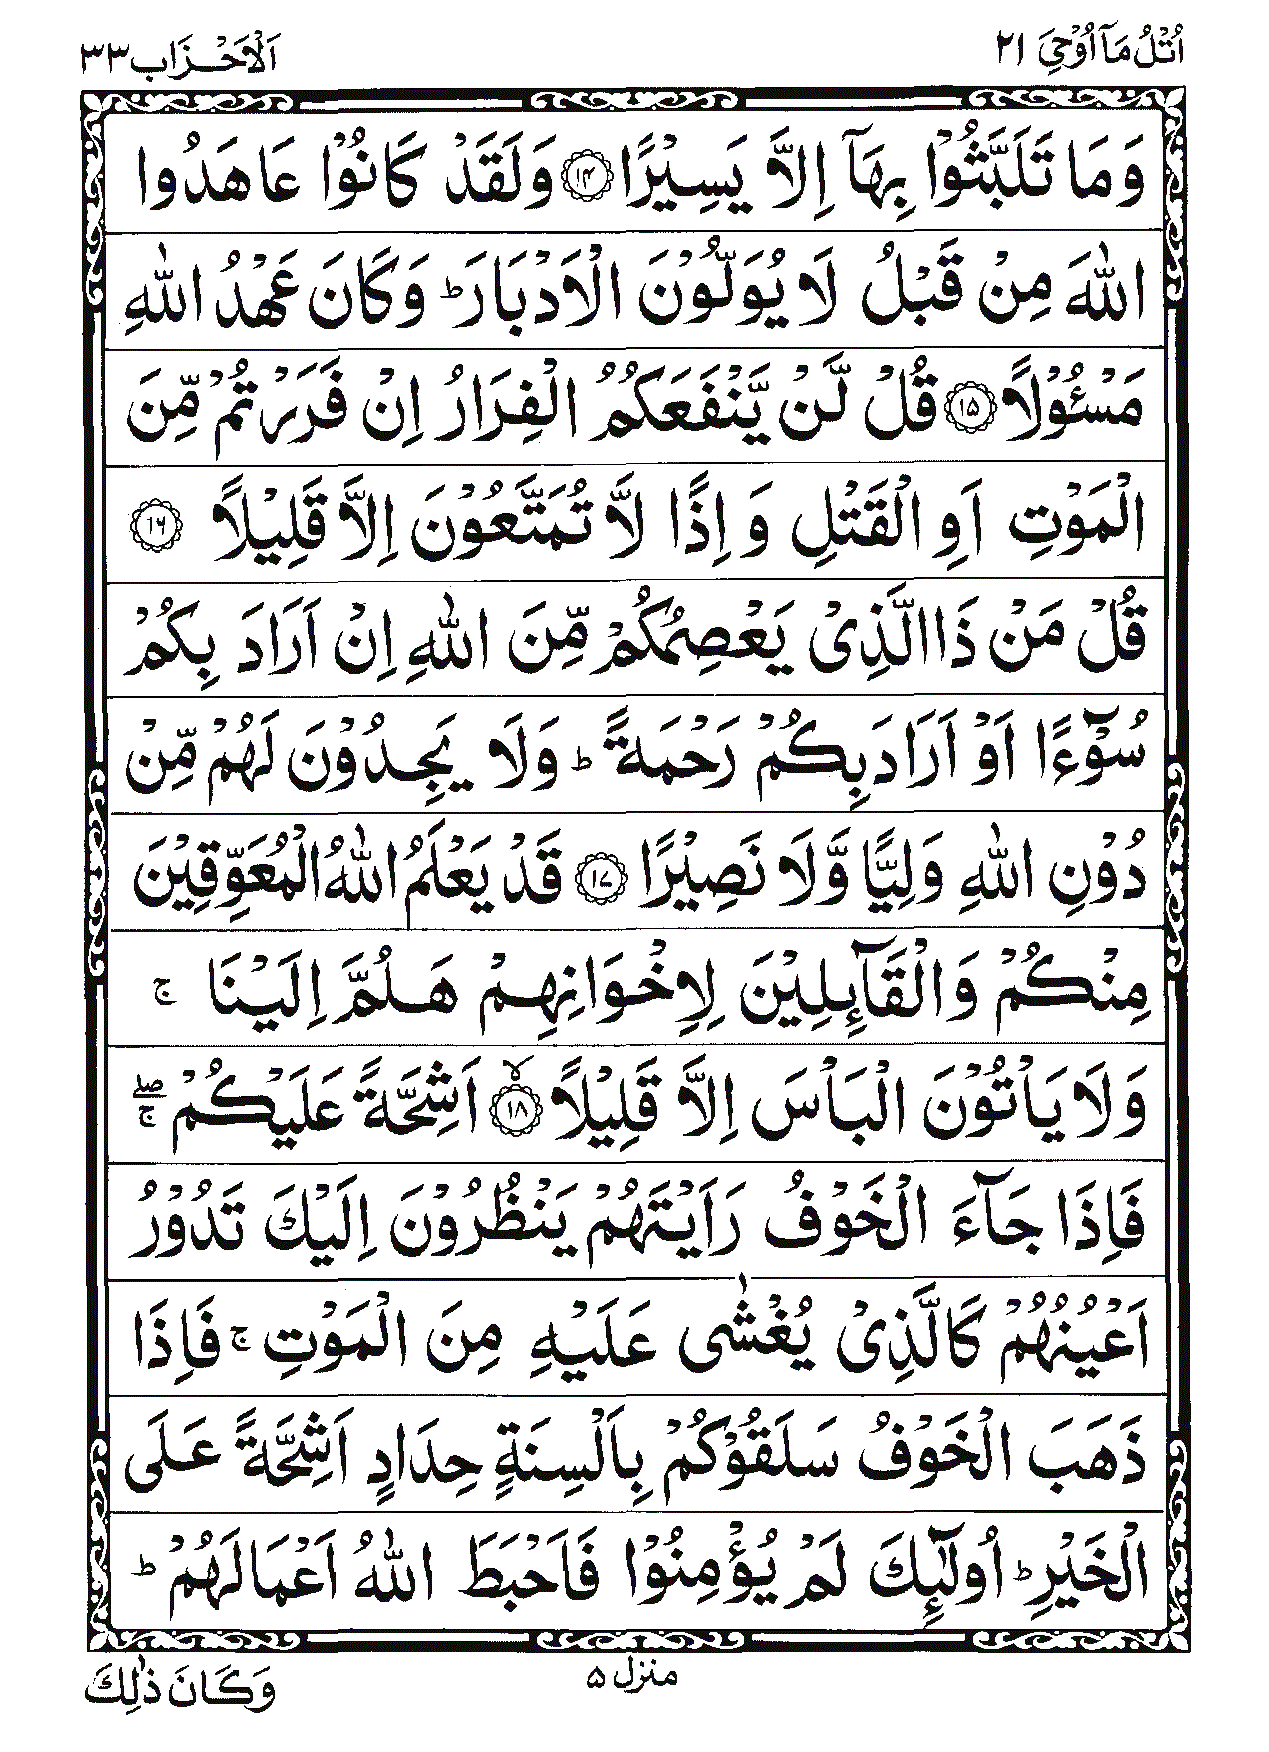 اُتْلُ مَاۤ اُوْحِیَ ٢١
اَلْاَحْزَاب ٣٣
وَمَا تَلَبَّثُوْا بِهَاۤ اِلَّا يَسِيْرًا ﴿١٤﴾ وَلَقَدْ كَانُوْا عَاهَدُوا
اللّٰهَ مِنْ قَبْلُ لَا يُوَلُّوْنَ الْاَدْبَارَ ؕ وَكَانَ عَهْدُ اللّٰهِ
مَسْـُٔوْلًا ﴿١٥﴾ قُلْ لَّنْ يَّنْفَعَكُمُ الْفِرَارُ اِنْ فَرَرْتُمْ مِّنَ
الْمَوْتِ اَوِ الْقَتْلِ وَ اِذًا لَّا تُمَتَّعُوْنَ اِلَّا قَلِيْلًا ﴿١٦﴾
قُلْ مَنْ ذَا الَّذِیْ يَعْصِمُكُمْ مِّنَ اللّٰهِ اِنْ اَرَادَ بِكُمْ
سُوْٓءًا اَوْ اَرَادَ بِكُمْ رَحْمَةً ؕ وَلَا يَجِدُوْنَ لَهُمْ مِّنْ
دُوْنِ اللّٰهِ وَلِيًّا وَّلَا نَصِيْرًا ﴿١٧﴾ قَدْ يَعْلَمُ اللّٰهُ الْمُعَوِّقِيْنَ
مِنْكُمْ وَالْقَآئِلِيْنَ لِاِخْوَانِهِمْ هَلُمَّ اِلَيْنَا ۚ
وَلَا يَاْتُوْنَ الْبَاْسَ اِلَّا قَلِيْلًا ۙ﴿١٨﴾ اَشِحَّةً عَلَيْكُمْ ۖۚ
فَاِذَا جَآءَ الْخَوْفُ رَاَيْتَهُمْ يَنْظُرُوْنَ اِلَيْكَ تَدُوْرُ
اَعْيُنُهُمْ كَالَّذِیْ يُغْشٰی عَلَيْهِ مِنَ الْمَوْتِ ۚ فَاِذَا
ذَهَبَ الْخَوْفُ سَلَقُوْكُمْ بِاَلْسِنَةٍ حِدَادٍ اَشِحَّةً عَلَی
الْخَيْرِ ؕ اُولٰٓئِكَ لَمْ يُؤْمِنُوْا فَاَحْبَطَ اللّٰهُ اَعْمَالَهُمْ ؕ
منزل ٥
وَكَانَ ذٰلِكَ